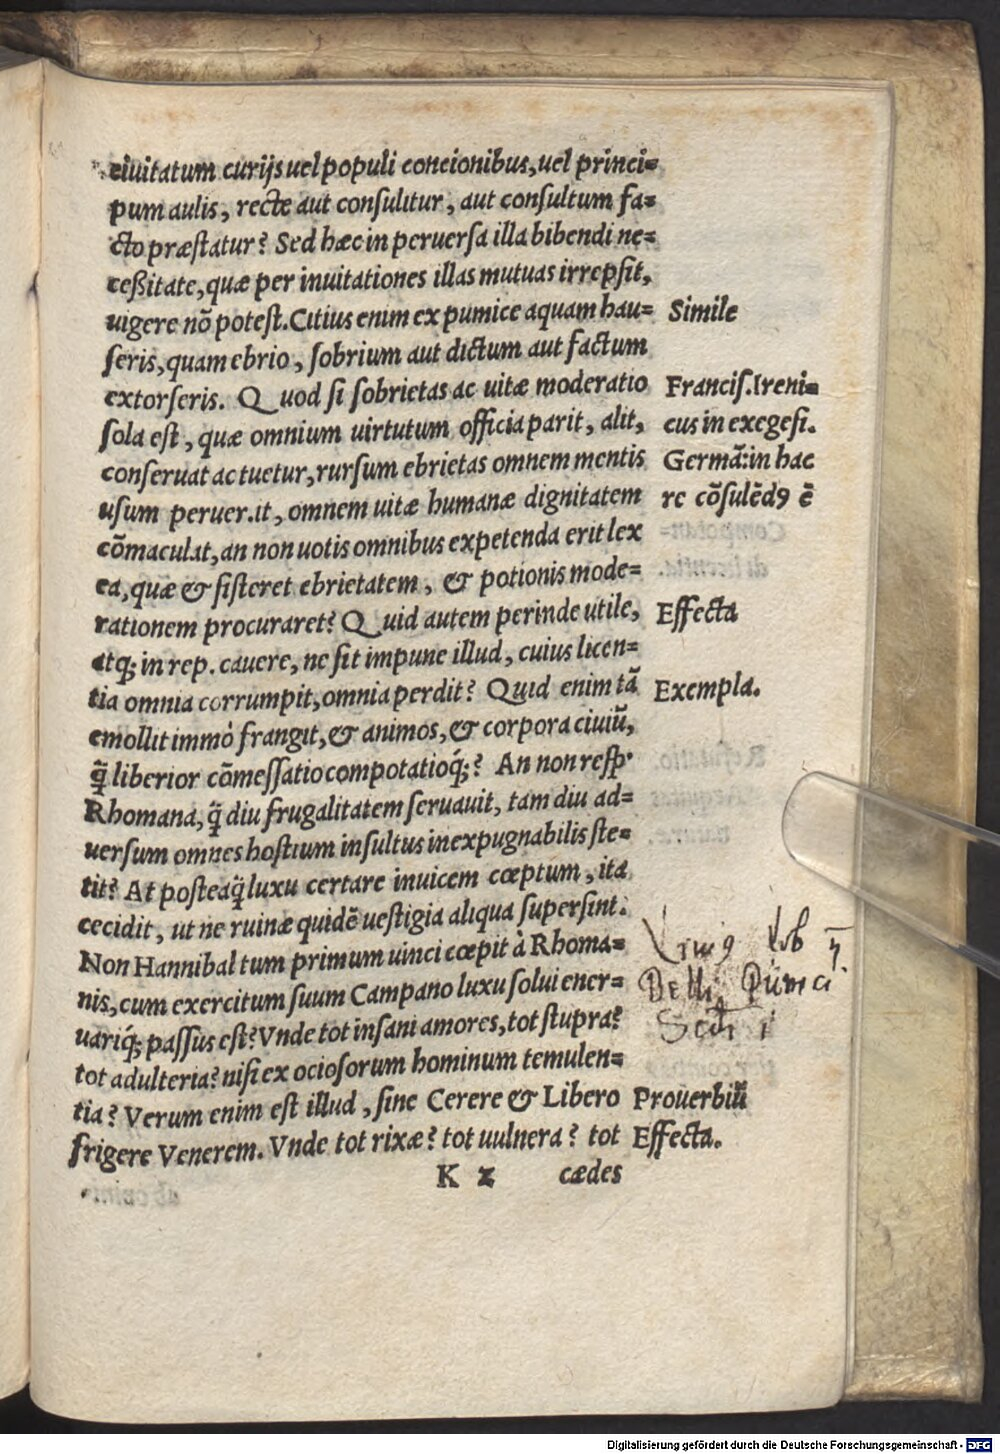 ciuitatum curijs uel populi concionibus, uel princi=
pum aulis, recte aut consulitur, aut consultum fa=
cto præstatur? Sed hæc in peruersa illa bibendi ne=
ceßitate, quæ per inuitationes illas mutuas irrepsit,
uigere nõ potest. Citius enim ex pumice aquam hau=
Simile
seris, quam ebrio, sobrium aut dictum aut factum
extorseris. Quod si sobrietas ac uitæ moderatio
Francis. Ireni=
sola est, quæ omnium uirtutum officia parit, alit,
cus in exegesi.
conseruat ac tuetur, rursum ebrietas omnem mentis
Germã: in hac
usum peruertit, omnem uitæ humanæ dignitatem
re cõsulẽdꝰ ẽ
cõmaculat, an non uotis omnibus expetenda erit lex
ea, quæ & sisteret ebrietatem, & potionis mode=
rationem procuraret? Quid autem perinde utile,
Effecta
atq; in rep. cauere, ne sit impune illud, cuius licen=
tia omnia corrumpit, omnia perdit? Quid enim tã
Exempla.
emollit immò frangit, & animos, & corpora ciuiũ,
q̃ liberior cõmessatio compotatioq́;? An non resp.
Rhomana, q̃ diu frugalitatem seruauit, tam diu ad=
uersum omnes hostium insultus inexpugnabilis ste=
tit? At posteaq̃ luxu certare inuicem cœptum, ita
cecidit, ut ne ruinæ quidẽ uestigia aliqua supersint.
Non Hannibal tum primum uinci cœpit à Rhoma=
nis, cum exercitum suum Campano luxu solui ener=
Belli Punici
uariq́; passus est? Vnde tot insani amores, tot stupra?
tot adulteria? nisi ex ociosorum hominum temulen=
tia? Verum enim est illud, sine Cerere & Libero
Prouerbiũ
frigere Venerem. Vnde tot rixæ? tot uulnera? tot
Effecta.
K 2 cædes
Digitalisierung gefördert durch die Deutsche Forschungsgemeinschaft - DFG